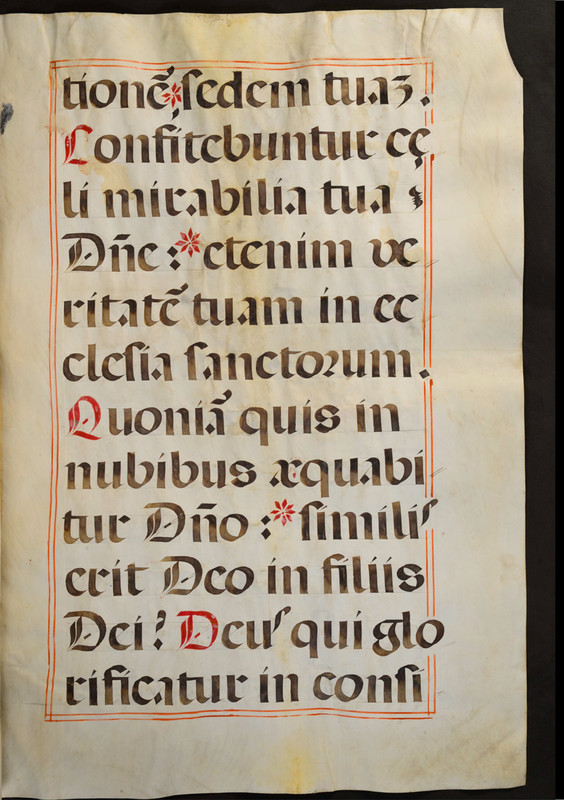 tionẽ,*ſedem tuaꝫ.
Confitebuntur cę
li mirabilia tua
Dñe :* etenim ve
ritatẽ tuam in ec
cleſia ſanctoꝛum.
Quoniã quis in
nubibus æquabi
tur Dño :* ſimiliſ
erit Deo in filiis
Dei? Deuſ qui glo
rificatur in conſi